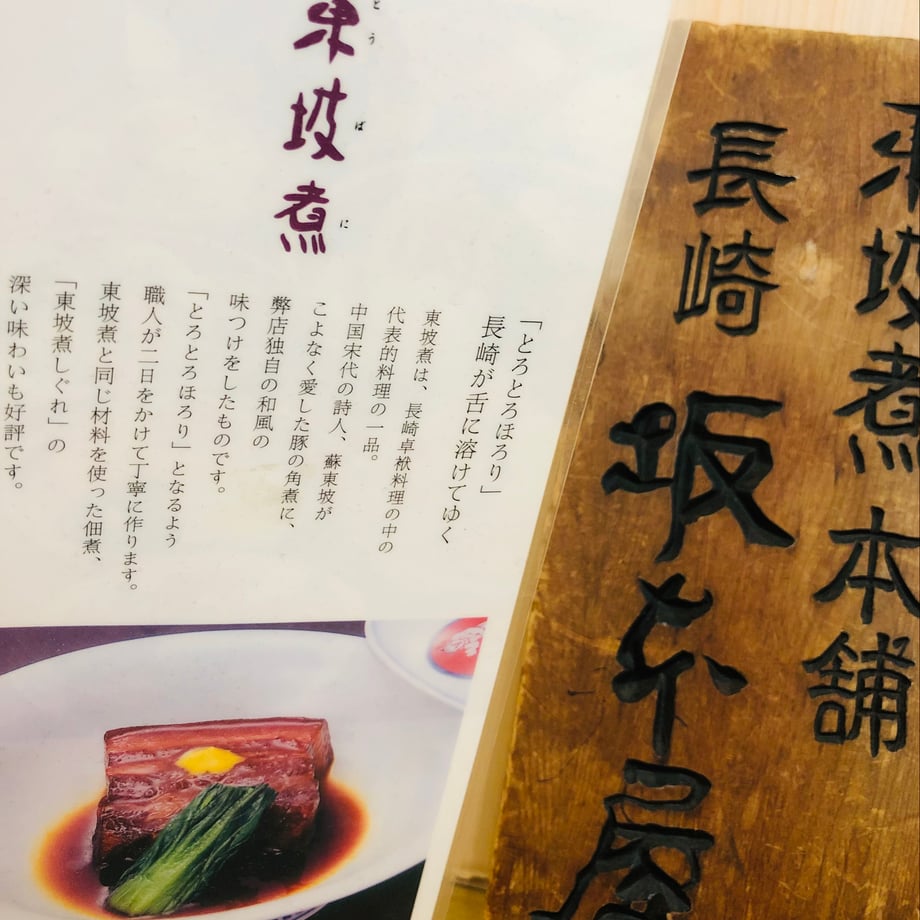 東坡煮
とうばに
「とろとろほろり」
長崎が舌に溶けてゆく
東坡煮は、長崎卓袱料理の中の
代表的料理の一品。
中国宋代の詩人、蘇東坡が
こよなく愛した豚の角煮に、
弊店独自の和風の
味つけをしたものです。
「とろとろほろり」となるよう
職人が二日をかけて丁寧に作ります。
東坡煮と同じ材料を使った佃煮、
「東坡煮しぐれ」の
深い味わいも好評です。
東坡煮本舗
長崎坂本屋